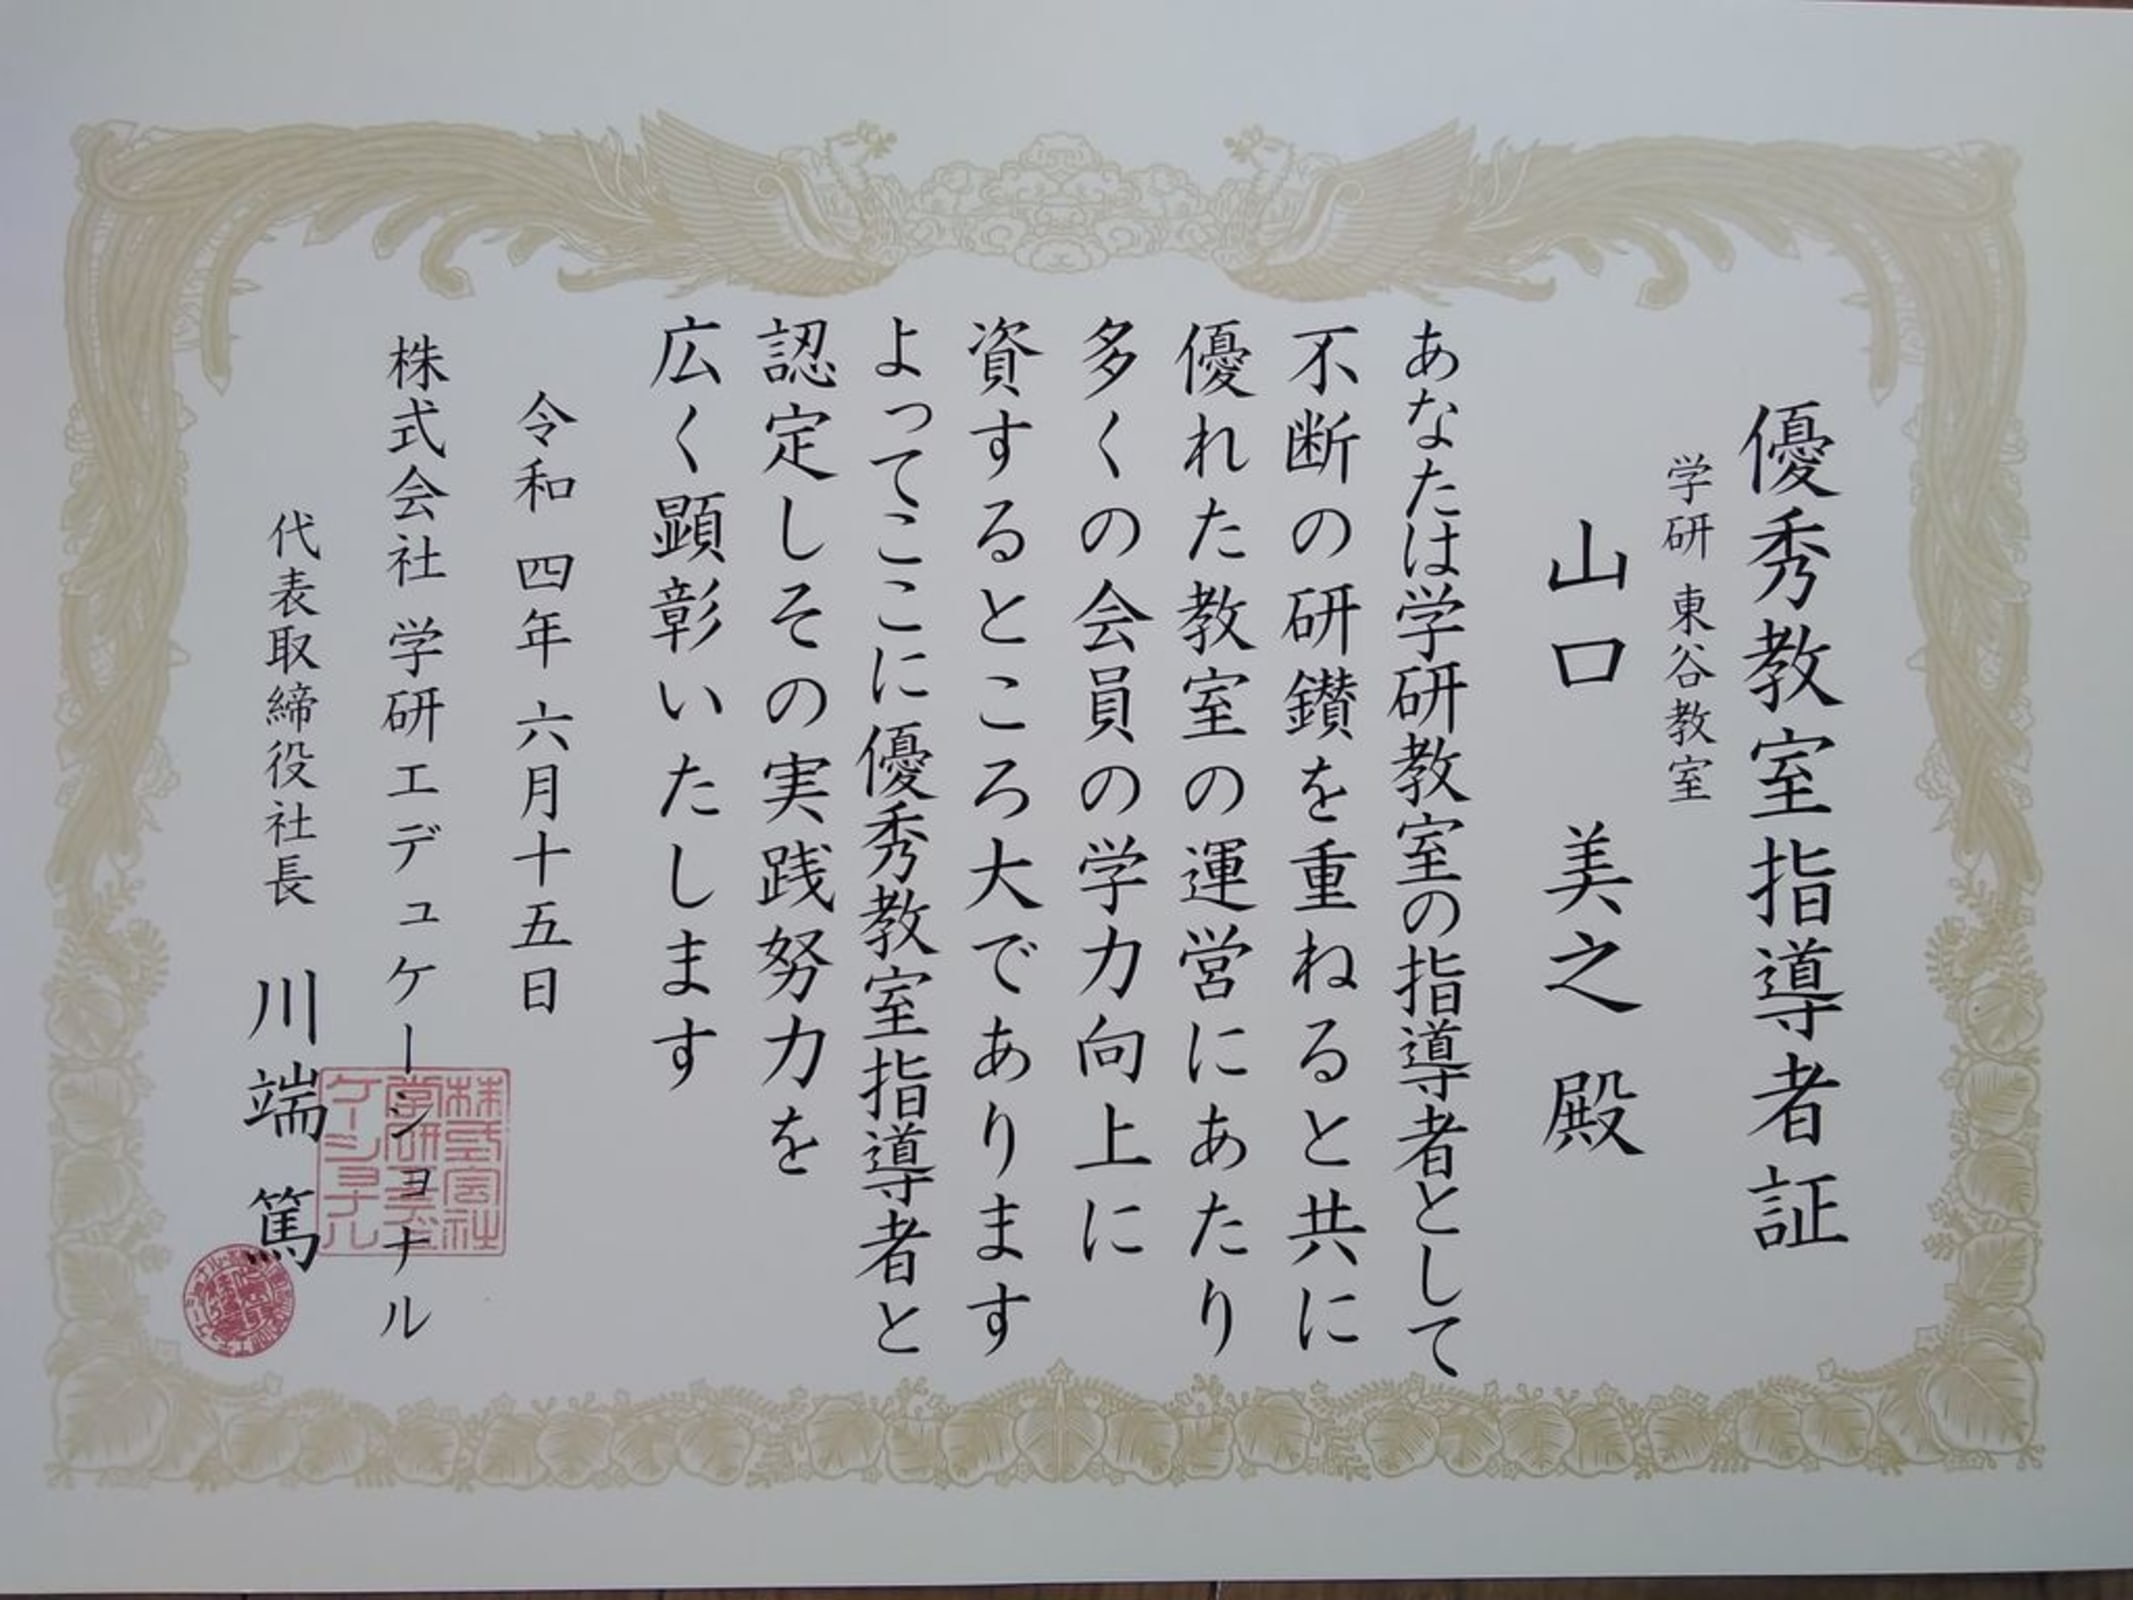 優秀教室指導者証
学研 東谷教室
山口 美之 殿
あなたは学研教室の指導者として
不断の研鑚を重ねると共に
優れた教室の運営にあたり
多くの会員の学力向上に
資するところ大であります
よってここに優秀教室指導者と
認定しその実践努力を
広く顕彰いたします
令和 四年 六月十五日
株式会社 学研エデュケーショナル
代表取締役社長 川端 篤
株式会社
学研エデュ
ケーショナル